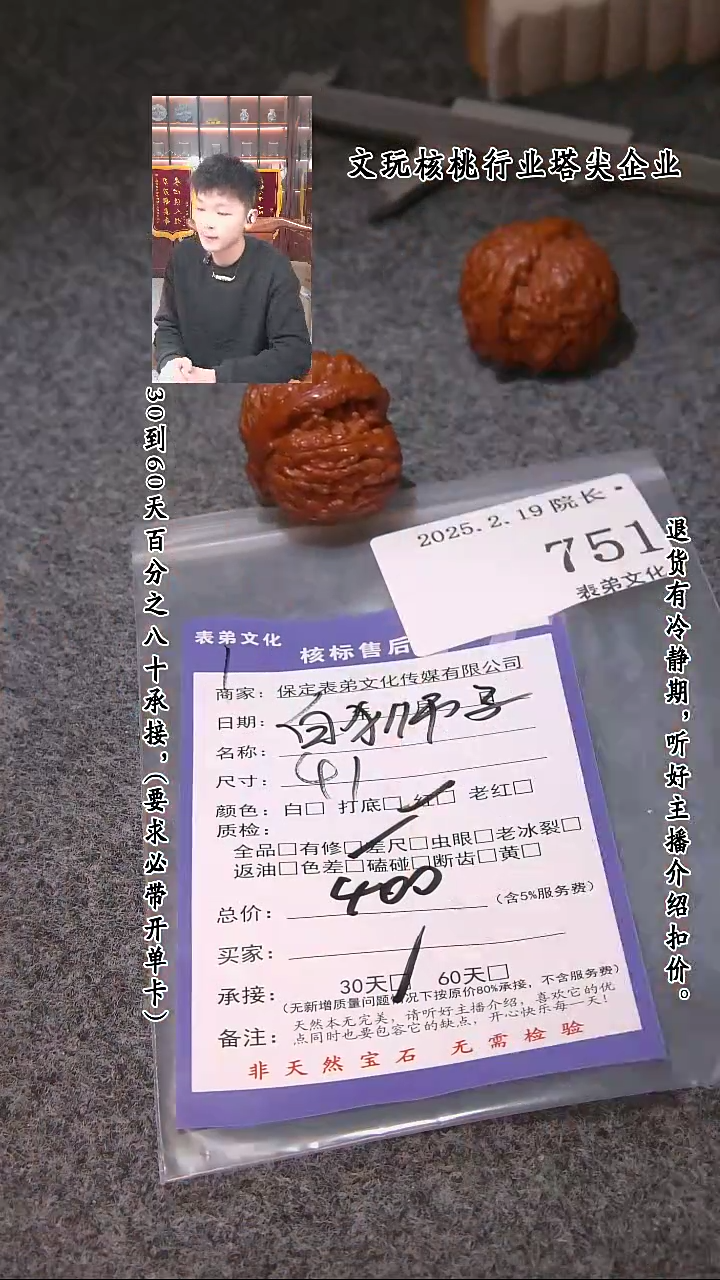 文玩核桃行业塔尖企业
30到60天百分之八十承接，（要求必带开单卡）
退货有冷静期，听好主播介绍扣价。
2025.2.19 院长·
751
表弟文化
表弟文化
核标售后
商家：保定表弟文化传媒有限公司
日期：
名称：白狮
尺寸：41
颜色：白□ 打底□ 红□ 老红□
质检：
全品□有修□差尺□虫眼□老冰裂□
返油□色差□磕碰□断齿□黄□
总价：400（含5%服务费）
买家：
承接：30天□ 60天□
（无新增质量问题情况下按原价80%承接，不含服务费）
备注：天然本无完美，请听好主播介绍，喜欢它的优
点同时也要包容它的缺点，开心快乐每一天！
非天然宝石 无需检验